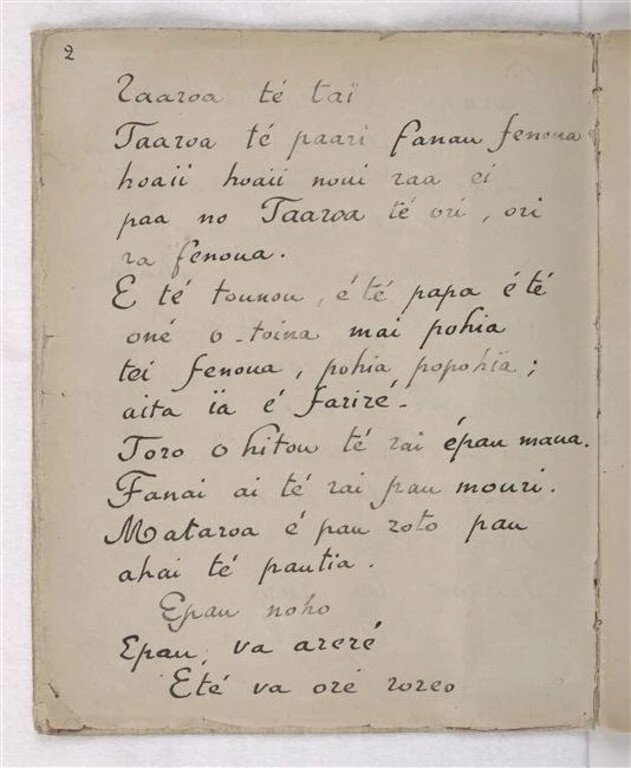 2
Taaroa té taï
Taaroa té paari fanau fenoua
hoaii hoaii noui raa ei
paa no Taaroa té ori, ori
ra fenoua.
E té tounou, é té papa é té
oné o-toina mai pohia
tei fenoua, pohia popohïa;
aita ïa é fariré.
Toro o hitou té rai épau maua.
Fanai ai té rai pau mouri.
Mataroa é pau roto pau
ahai té pautia.
Epau noho
Epau, va areré
Eté va oré roreo